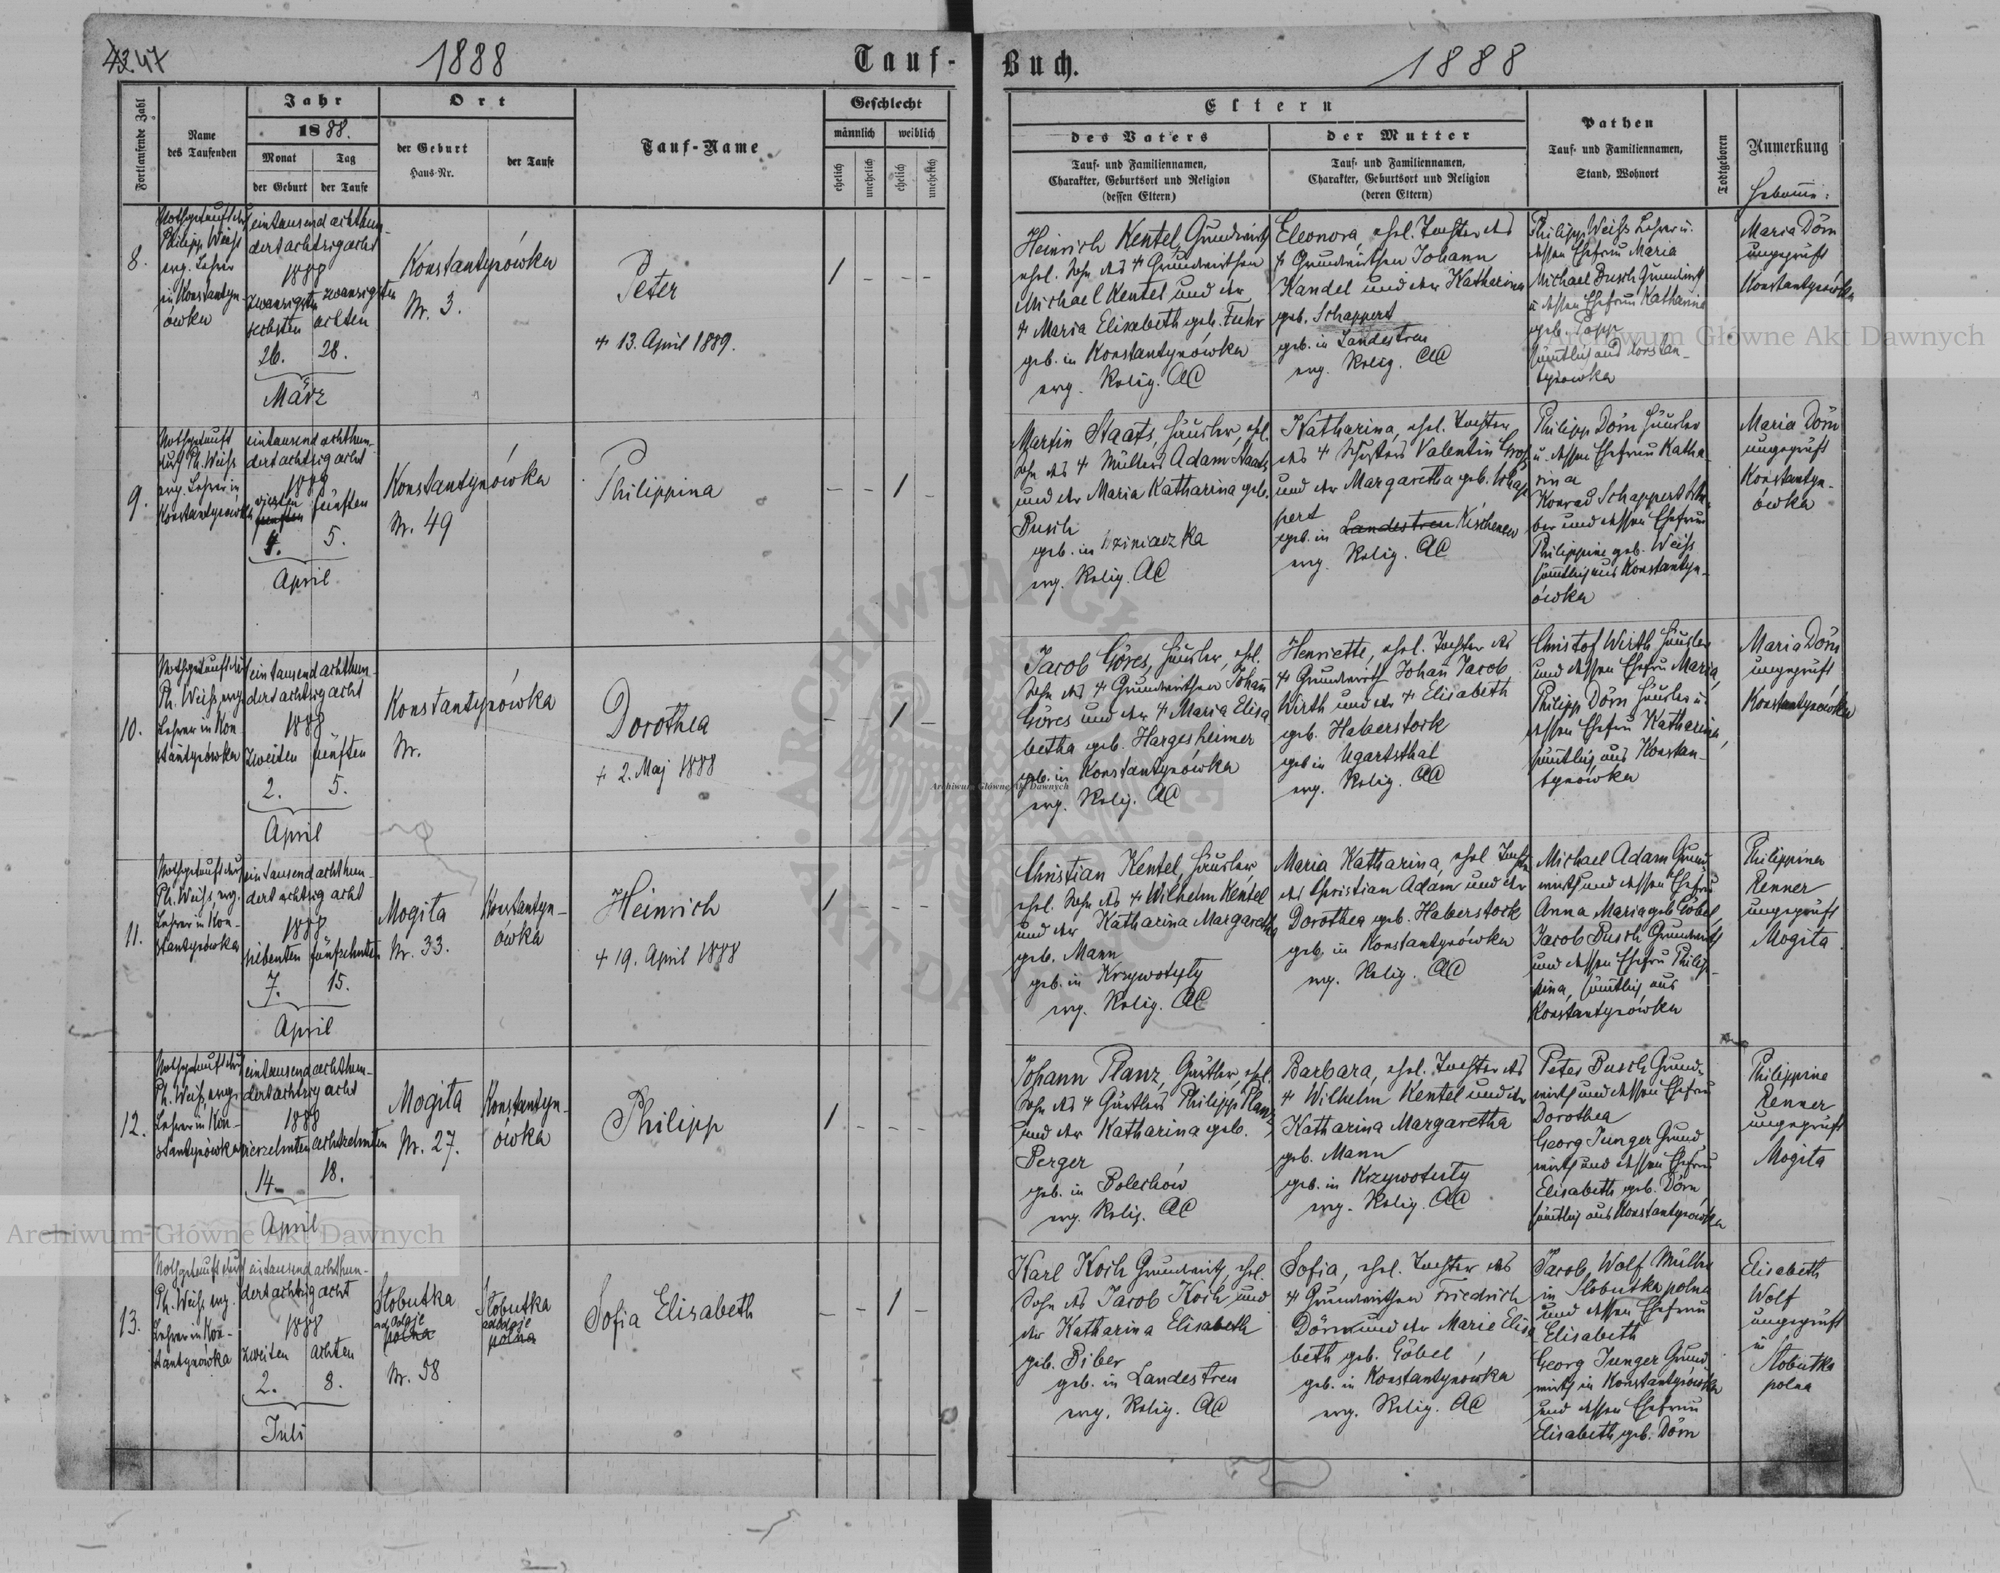 4247
1888
Tauf-
Buch.
1888
Fortlaufende Zahl
Name
des Taufenden
Jahr
1888.
Monat
Tag
der Geburt
der Taufe
Ort
der Geburt
Haus-Nr.
der Taufe
Tauf-Name
Geschlecht
männlich
weiblich
ehelich
unehelich
ehelich
unehelich
Eltern
des Vaters
Tauf- und Familiennamen,
Charakter, Geburtsort und Religion
(dessen Eltern)
der Mutter
Tauf- und Familiennamen,
Charakter, Geburtsort und Religion
(deren Eltern)
Pathen
Tauf- und Familiennamen,
Stand, Wohnort
Todtgeboren
Anmerkung
Hebamme:
8.
Nothgetauft durch
Philipp Weiss
evg. Lehrer
in Konstantyn-
ówka
eintausend achthun-
dert achtzig acht
1888
zwanzigsten zwanzigsten
sechsten achten
26. 28.
März
Konstantynówka
Nr. 3.
Peter
+ 13. April 1889.
1 - - -
Heinrich Kentel, Grundwirth
ehel. Sohn des + Grundwirthen
Michael Kentel und der
+ Maria Elisabeth geb. Fuhr
geb. in Konstantynówka
evg. Relig. AC
Eleonora, ehel. Tochter des
+ Grundwirthen Johann
Kandel und der Katharina
geb. Schappert
geb. in Landestreu
evg. Relig. AC
Philipp Weiss Lehrer u.
dessen Ehefrau Maria
Michael Busch Grundwirth
u dessen Ehefrau Katharina
geb. Papp
sämtlich aus Konstan-
tynówka
Maria Dörn
ungeprüft
Konstantynówka
9.
Nothgetauft
durch Ph. Weiss
evg. Lehrer in
Konstantynówka
eintausend achthun-
dert achtzig acht
1888
vierten
fünften fünften
4. 5.
April
Konstantynówka
Nr. 49
Philippina
- - 1 -
Martin Staats, Häusler, ehel.
Sohn des + Müllers Adam Staats
und der Maria Katharina geb.
Busch
geb. in Uziniaczka
evg. Relig. AC
Katharina, ehel. Tochter
des + Schusters Valentin Gross
und der Margaretha geb. Schap
pert
geb. in Landestreu Kischenew
evg. Relig. AC
Philipp Dörn Häusler
u. dessen Ehefrau Katha-
rina
Konrad Schappert
ber und dessen Ehefrau
Philippine geb. Weiss
sämtlich aus Konstantyn-
ówka
Maria Dörn
ungeprüft
Konstantyn-
ówka
10.
Nothgetauft durch
Ph. Weiss, evg.
Lehrer in Kon-
stantynówka
eintausend achthun-
dert achtzig acht
1888
zweiten fünften
2. 5.
April
Konstantynówka
Nr.
Dorothea
+ 2. Maj 1888
- - 1 -
Jacob Göres, Häusler, ehel.
Sohn des + Grundwirthen Johann
Göres und der + Maria Elisa
betha geb. Hargesheimer
geb. in Konstantynówka
evg. Relig. AC
Henriette, ehel. Tochter des
+ Grundwirth Johan Jacob
Wirth und der + Elisabeth
geb. Haberstock
geb in Ugartsthal
evg. Relig. AC
Christof Wirth Häusler
und dessen Ehefrau Maria,
Philipp Dörn Häusler u.
dessen Ehefrau Katharina,
sämtlich aus Konstan-
tynówka
Maria Dörn
ungeprüft
Konstantynówka
11.
Nothgetauft durch
Ph. Weiss evg.
Lehrer in Kon-
stantynówka
eintausend achthun-
dert achtzig acht
1888
siebenten fünfzehnten
7. 15.
April
Mogita
Nr. 33.
Konstantyn-
ówka
Heinrich
+ 19. April 1888
1 - - -
Christian Kentel, Häusler
ehel. Sohn des + Wilhelm Kentel
und der Katharina Margaretha
geb. Mann
geb. in Krzywotuły
evg. Relig. AC
Maria Katharina, ehel Tochter
des Christian Adam und der
Dorothea geb. Haberstock
geb. in Konstantynówka
evg. Relig. AC
Michael Adam Grund-
wirth und dessen Ehefrau
Anna Maria geb. Göbel,
Jacob Busch Grundwirth
und dessen Ehefrau Philip-
pina, sämtlich aus
Konstantynówka
Philippina
Renner
ungeprüft
Mogita
12.
Nothgetauft durch
Ph. Weiss, evg.
Lehrer in Kon-
stantynówka
eintausend achthun-
dert achtzig acht
1888
vierzehnten achtzehnten
14. 18.
April
Mogita
Nr. 27.
Konstantyn-
ówka
Philipp
1 - - -
Johann Planz, Gärtler, ehel.
Sohn des + Gürtlers Philipp Planz,
und der Katharina geb.
Perger
geb. in Bolechów
evg. Relig. AC
Barbara, ehel. Tochter des
+ Wilhelm Kentel und der
Katharina Margaretha
geb. Mann
geb. in Krzywotuły
evg. Relig. AC
Peter Busch Grund-
wirth und dessen Ehefrau
Dorothea
Georg Junger Grund
wirth und dessen Ehefrau
Elisabeth geb. Dörn
sämtlich aus Konstantynówka
Philippine
Renner
ungeprüft
Mogita
13.
Nothgetauft durch
Ph. Weiss evg.
Lehrer in Kon-
stantynówka
eintausend achthun-
dert achtzig acht
1888
zweiten achten
2. 8.
Juli
Słobutka
ad Odaje
polna
Nr. 58
Słobutka
ad Odaje
polna
Sofia Elisabeth
- - 1 -
Karl Koch Grundwirth, ehel.
Sohn des Jacob Koch und
der Katharina Elisabeth
geb. Biber
geb. in Landestreu
evg. Relig. AC
Sofia, ehel. Tochter des
+ Grundwirthen Friedrich
Dörn und der Marie Elisa
beth geb. Göbel,
geb. in Konstantynówka
evg. Relig. AC
Jacob Wolf Müller
in Słobutka polna
und dessen Ehefrau
Elisabeth
Georg Junger Grund
wirth in Konstantynówka
und dessen Ehefrau
Elisabeth geb. Dörn
Elisabeth
Wolf
ungeprüft
in
Słobutka
polna
Archiwum Główne Akt Dawnych
Archiwum Główne Akt Dawnych
Archiwum Główne Akt Dawnych